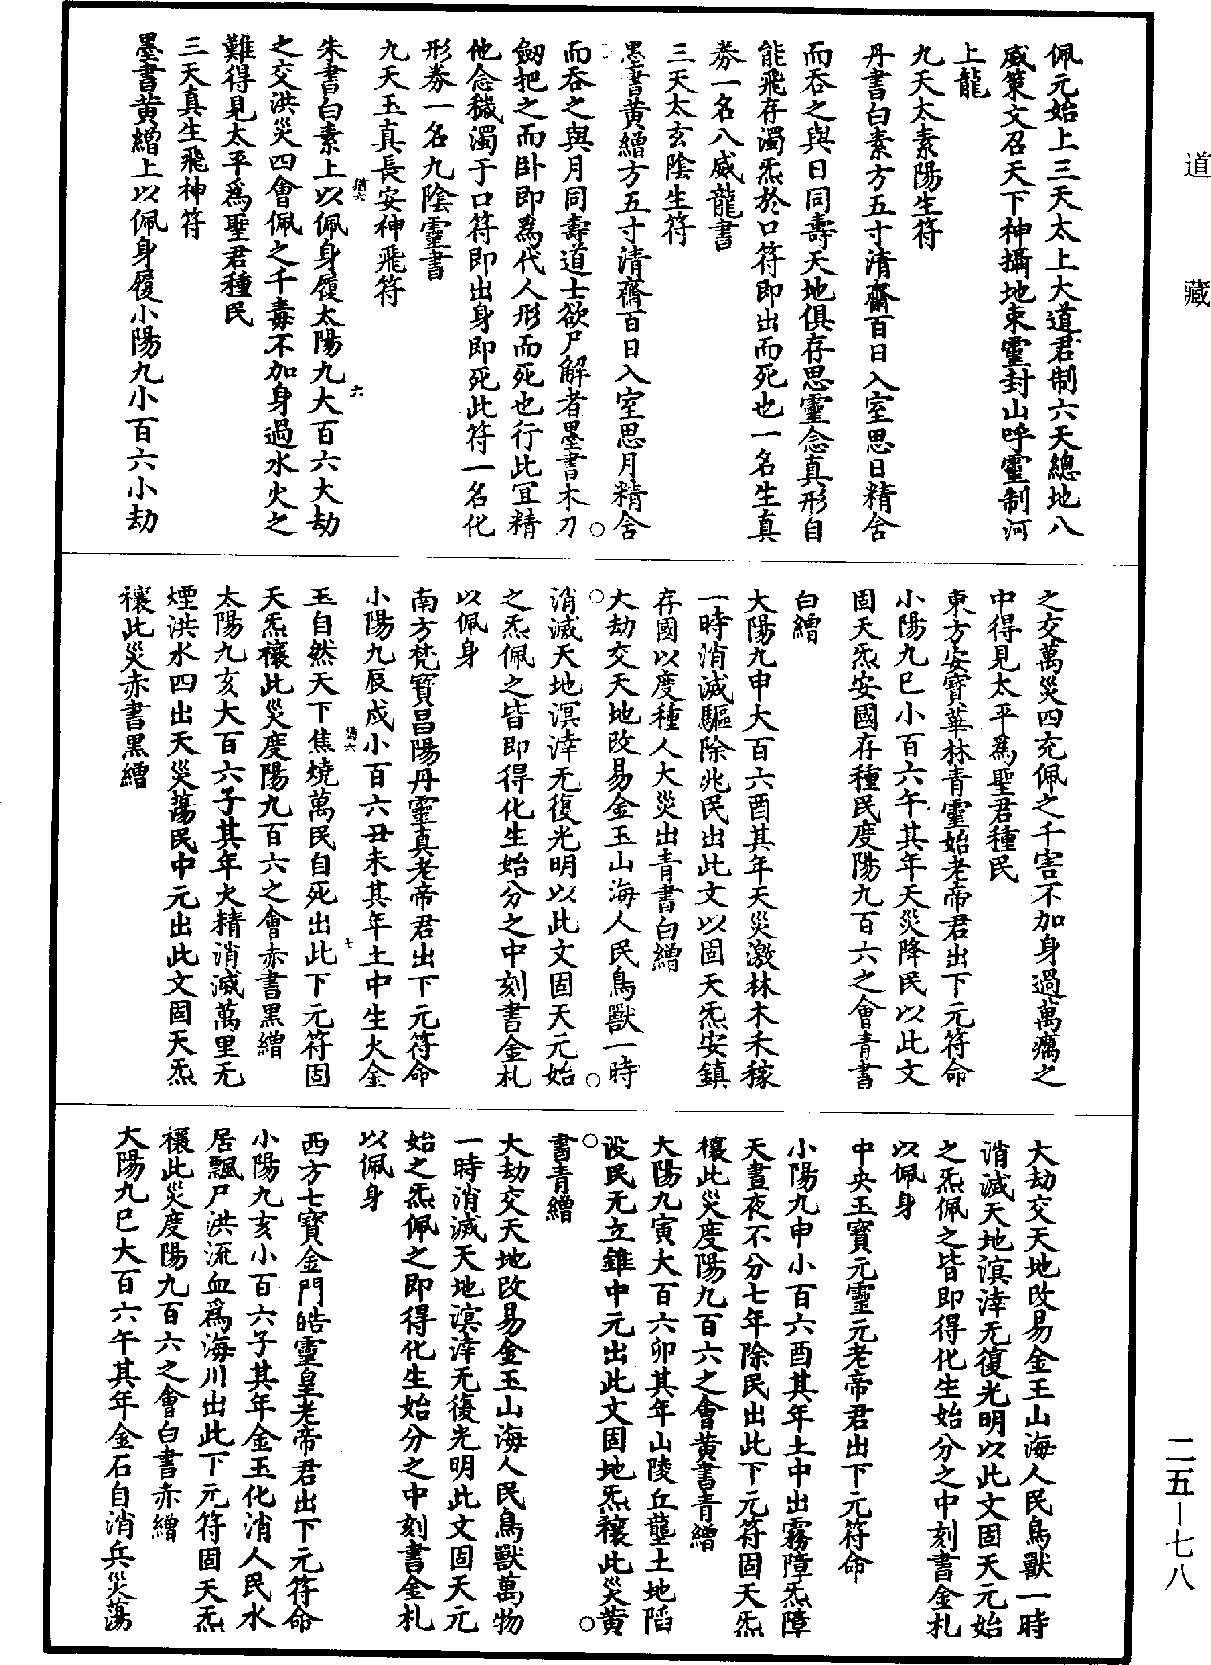 道藏
佩元始上三天太上大道君制六天總地八
威策文召天下神攝地束靈封山呼靈制河
上龍
九天太素陽生符
丹書白素方五寸清齋百日入室思日精含
而吞之與日同壽天地俱存思靈念真形自
能飛存濁炁於口符即出而死也一名生真
券一名八威龍書
三天太玄陰生符
墨書黄繒方五寸清齋百日入室思月精含
而吞之與月同壽道士欲尸解者墨書木刀
劒把之而卧即爲代人形而死也行此宜精
他念穢濁于口符即出身即死此符一名化
形券一名九陰靈書
九天玉真長安神飛符
朱書白素上以佩身履太陽九大百六大劫
之交洪災四會佩之千毒不加身過水火之
難得見太平爲聖君種民
三天真生飛神符
墨書黄繒上以佩身履小陽九小百六小劫
之交萬災四充佩之千害不加身過萬癘之
中得見太平爲聖君種民
東方安寶華林青靈始老帝君出下元符命
小陽九巳小百六午其年天災降民以此文
固天炁安國存種民度陽九百六之會青書
白繒
大陽九申大百六酉其年天災激林木禾稼
一時消滅驅除兆民出此文以固天炁安鎮
存國以度種人大災出青書白繒
大劫交天地改易金玉山海人民鳥獸一時
消滅天地溟涬无復光明以此文固天元始
之炁佩之皆即得化生始分之中刻書金札
以佩身
南方梵寶昌陽丹靈真老帝君出下元符命
小陽九辰戌小百六丑未其年土中生火金
玉自然天下焦燒萬民自死出此下元符固
天炁禳此災度陽九百六之會赤書黑繒
太陽九亥大百六子其年火精消滅萬里无
煙洪水四出天災蕩民中元出此文固天炁
禳此災赤書黑繒
大劫交天地改易金玉山海人民鳥獸一時
消滅天地溟涬无復光明以此文固天元始
之炁佩之皆即得化生始分之中刻書金札
以佩身
中央玉寶元靈元老帝君出下元符命
小陽九申小百六酉其年土中出霧障炁障
天晝夜不分七年除民出此下元符固天炁
禳此災度陽九百六之會黄書青繒
大陽九寅大百六卯其年山陵丘壟土地陷
没民无立錐中元出此文固地炁禳此災黄
書青繒
大劫交天地改易金玉山海人民鳥獸萬物
一時消滅天地溟涬无復光明此文固天元
始之炁佩之即得化生始分之中刻書金札
以佩身
西方七寶金門皓靈皇老帝君出下元符命
小陽九亥小百六子其年金玉化消人民水
居飄尸洪流血爲海川出此下元符固天炁
禳此災度陽九百六之會白書赤繒
大陽九巳大百六午其年金石自消兵災蕩
二五—七八